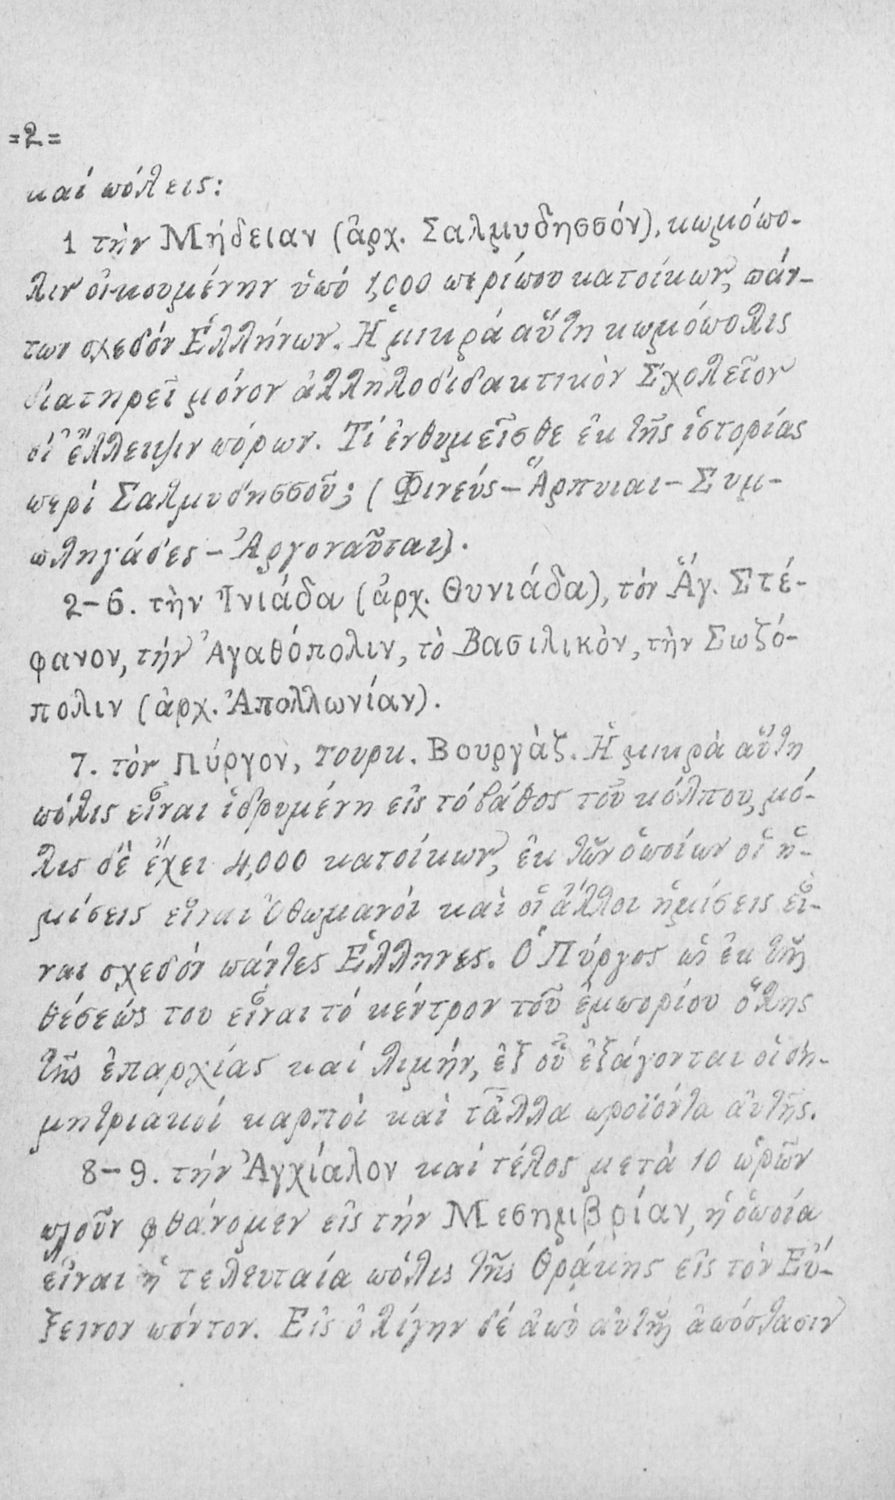 =2=
καί πόλεις:
1 τὴν Μήδειαν (ἀρχ. Σαλμυδησσόν), κωμόπο-
λιν οἰκουμένην ὑπό 1,000 περίπου κατοίκων, πάν-
των σχεδόν Ἑλλήνων. Ἡ μικρά αὕτη κωμόπολις
διατηρεῖ μόνον ἀλληλοδιδακτικὸν Σχολεῖον
δι' ἔλλειψιν πόρων. Τί ἐνθυμεῖσθε ἐκ τῆς ἱστορίας
περί Σαλμυδησσοῦ; (Φινεύς – Ἅρπυιαι – Συμ-
πληγάδες – Ἀργοναῦται).
2–6. τὴν Ἰνιάδα (ἀρχ. Θυνιάδα), τόν Ἅγ. Στέ-
φανον, τήν Ἀγαθόπολιν, τὸ Βασιλικὸν, τὴν Σωζό-
πολιν (ἀρχ. Ἀπολλωνίαν).
7. τὸν Πύργον, Τουρκ. Βουργὰζ. Ἡ μικρὰ αὕτη
πόλις εἶναι ἱδρυμένη εἰς τό βάθος τοῦ κόλπου, μό-
λις δὲ ἔχει 4,000 κατοίκων, ἐκ τῶν ὁποίων οἱ ἡ-
μίσεις εἶναι Ὀθωμανόι καὶ οἱ ἄλλοι ἡμίσεις εἶ-
ναι σχεδόν πάντες Ἕλληνες. Ὁ Πύργος ὡς ἐκ τῆς
θέσεώς του εἶναι τό κέντρον τοῦ ἐμπορίου ὅλης
τῆς ἐπαρχίας καί λιμήν, ἐξ οὗ ἐξάγονται οἱ δη-
μητριακοί καρποί καὶ τἆλλα προϊόντα αὐτῆς.
8–9. τήν Ἀγχίαλον καί τέλος μετὰ 10 ὡρῶν
πλοῦν φθάνομεν εἰς τήν Μεσημβρίαν, ἡ ὁποία
εἶναι ἡ τελευταία πόλις τῆς Θράκης εἰς τὸν Εὔ-
ξεινον πόντον. Εἰς ὀλίγην δέ ἀπὸ αὐτῆς ἀπόστασιν